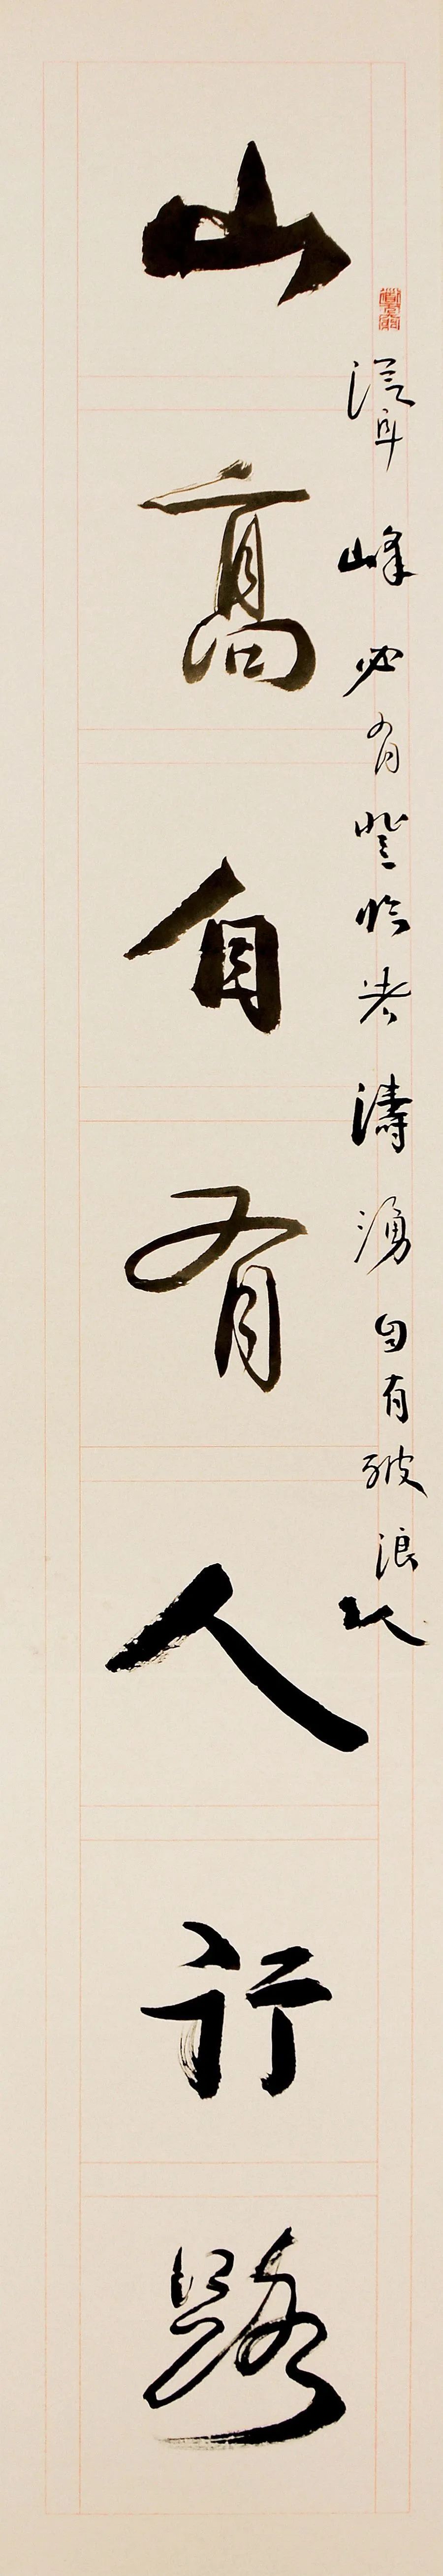 峰必有登臨者濤湧自有破浪人
山高自有人行路